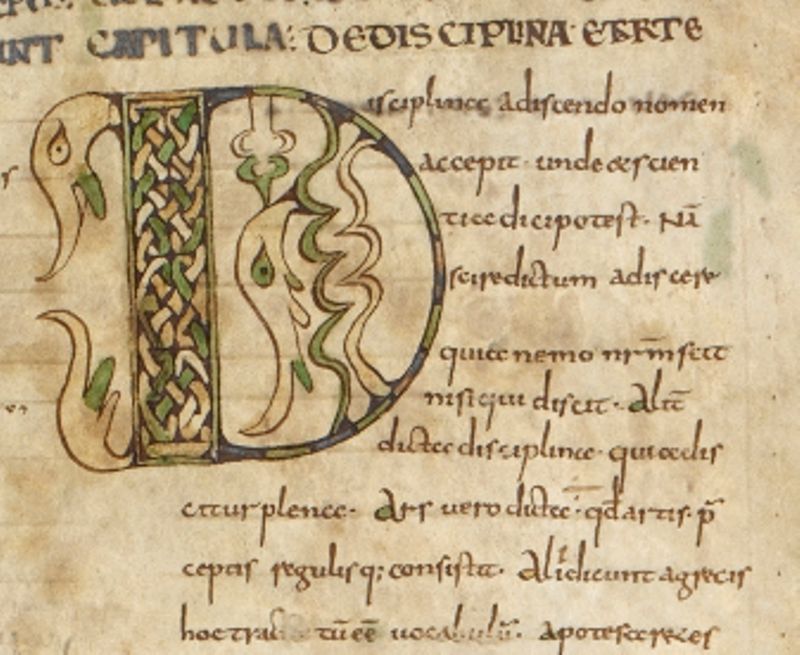 INT CAPITULA: DE DISCIPLINA ET ARTE
Disciplina a discendo nomen
accepit · unde & scien
tia dici potest · Nā
scire dictum a discere
quia nemo nr̄m scit
nisi qui discit · Alit̄
dicta disciplina · quia dis
citur plena · Ars vero dicta · qd̄ artis p̄
ceptis regulisq; consistat · Alii dicunt a grecis
hoc tū eē apo tes